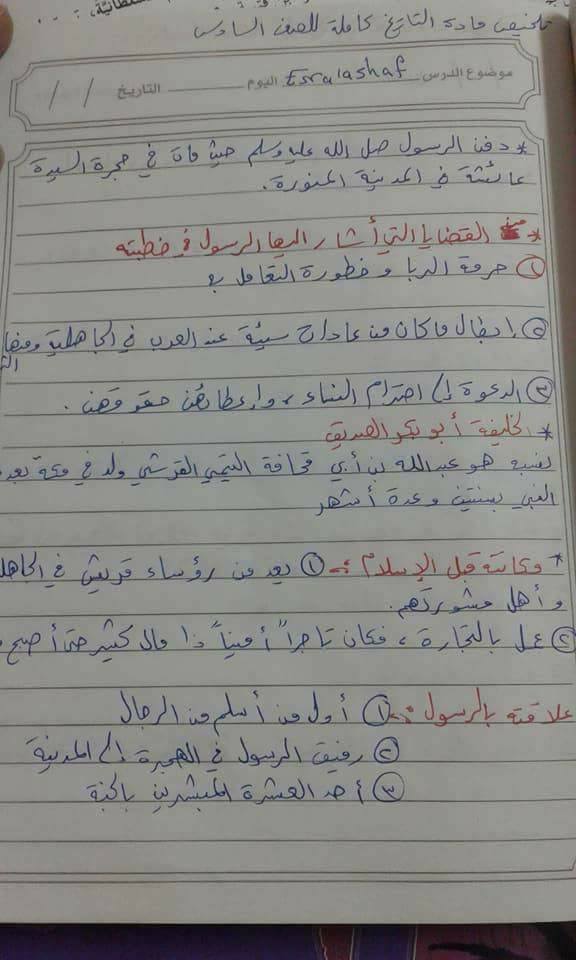 تلخيص مادة التاريخ كاملة للصف السادس
موضوع الدرس Esralashaf اليوم التاريخ / /
* دفن الرسول صل الله عليه وسلم حيث مات في حجرة السيدة
عائشة في المدينة المنورة.
* من القضايا التي أشار اليها الرسول في خطبته
① حرمة الربا و خطورة التعامل به
② إبطال ما كان من عادات سيئة عند العرب في الجاهلية ومنها
③ الدعوة إلى احترام النساء، وإعطائهن حقوقهن.
* الخليفة أبو بكر الصديق
نسبه هو عبدالله بن أبي قحافة التيمي القرشي ولد في مكة بعد
النبي بسنتين وعدة أشهر
* مكانته قبل الإسلام :- ① يعد من رؤساء قريش في
وأهل مشورتهم.
② عمل بالتجارة، فكان تاجراً أميناً ذا مال كثير حتى أصبح
علاقته بالرسول :- ① أول من أسلم من الرجال
② رفيق الرسول في الهجرة إلى المدينة
③ أحد العشرة المبشرين بالجنة